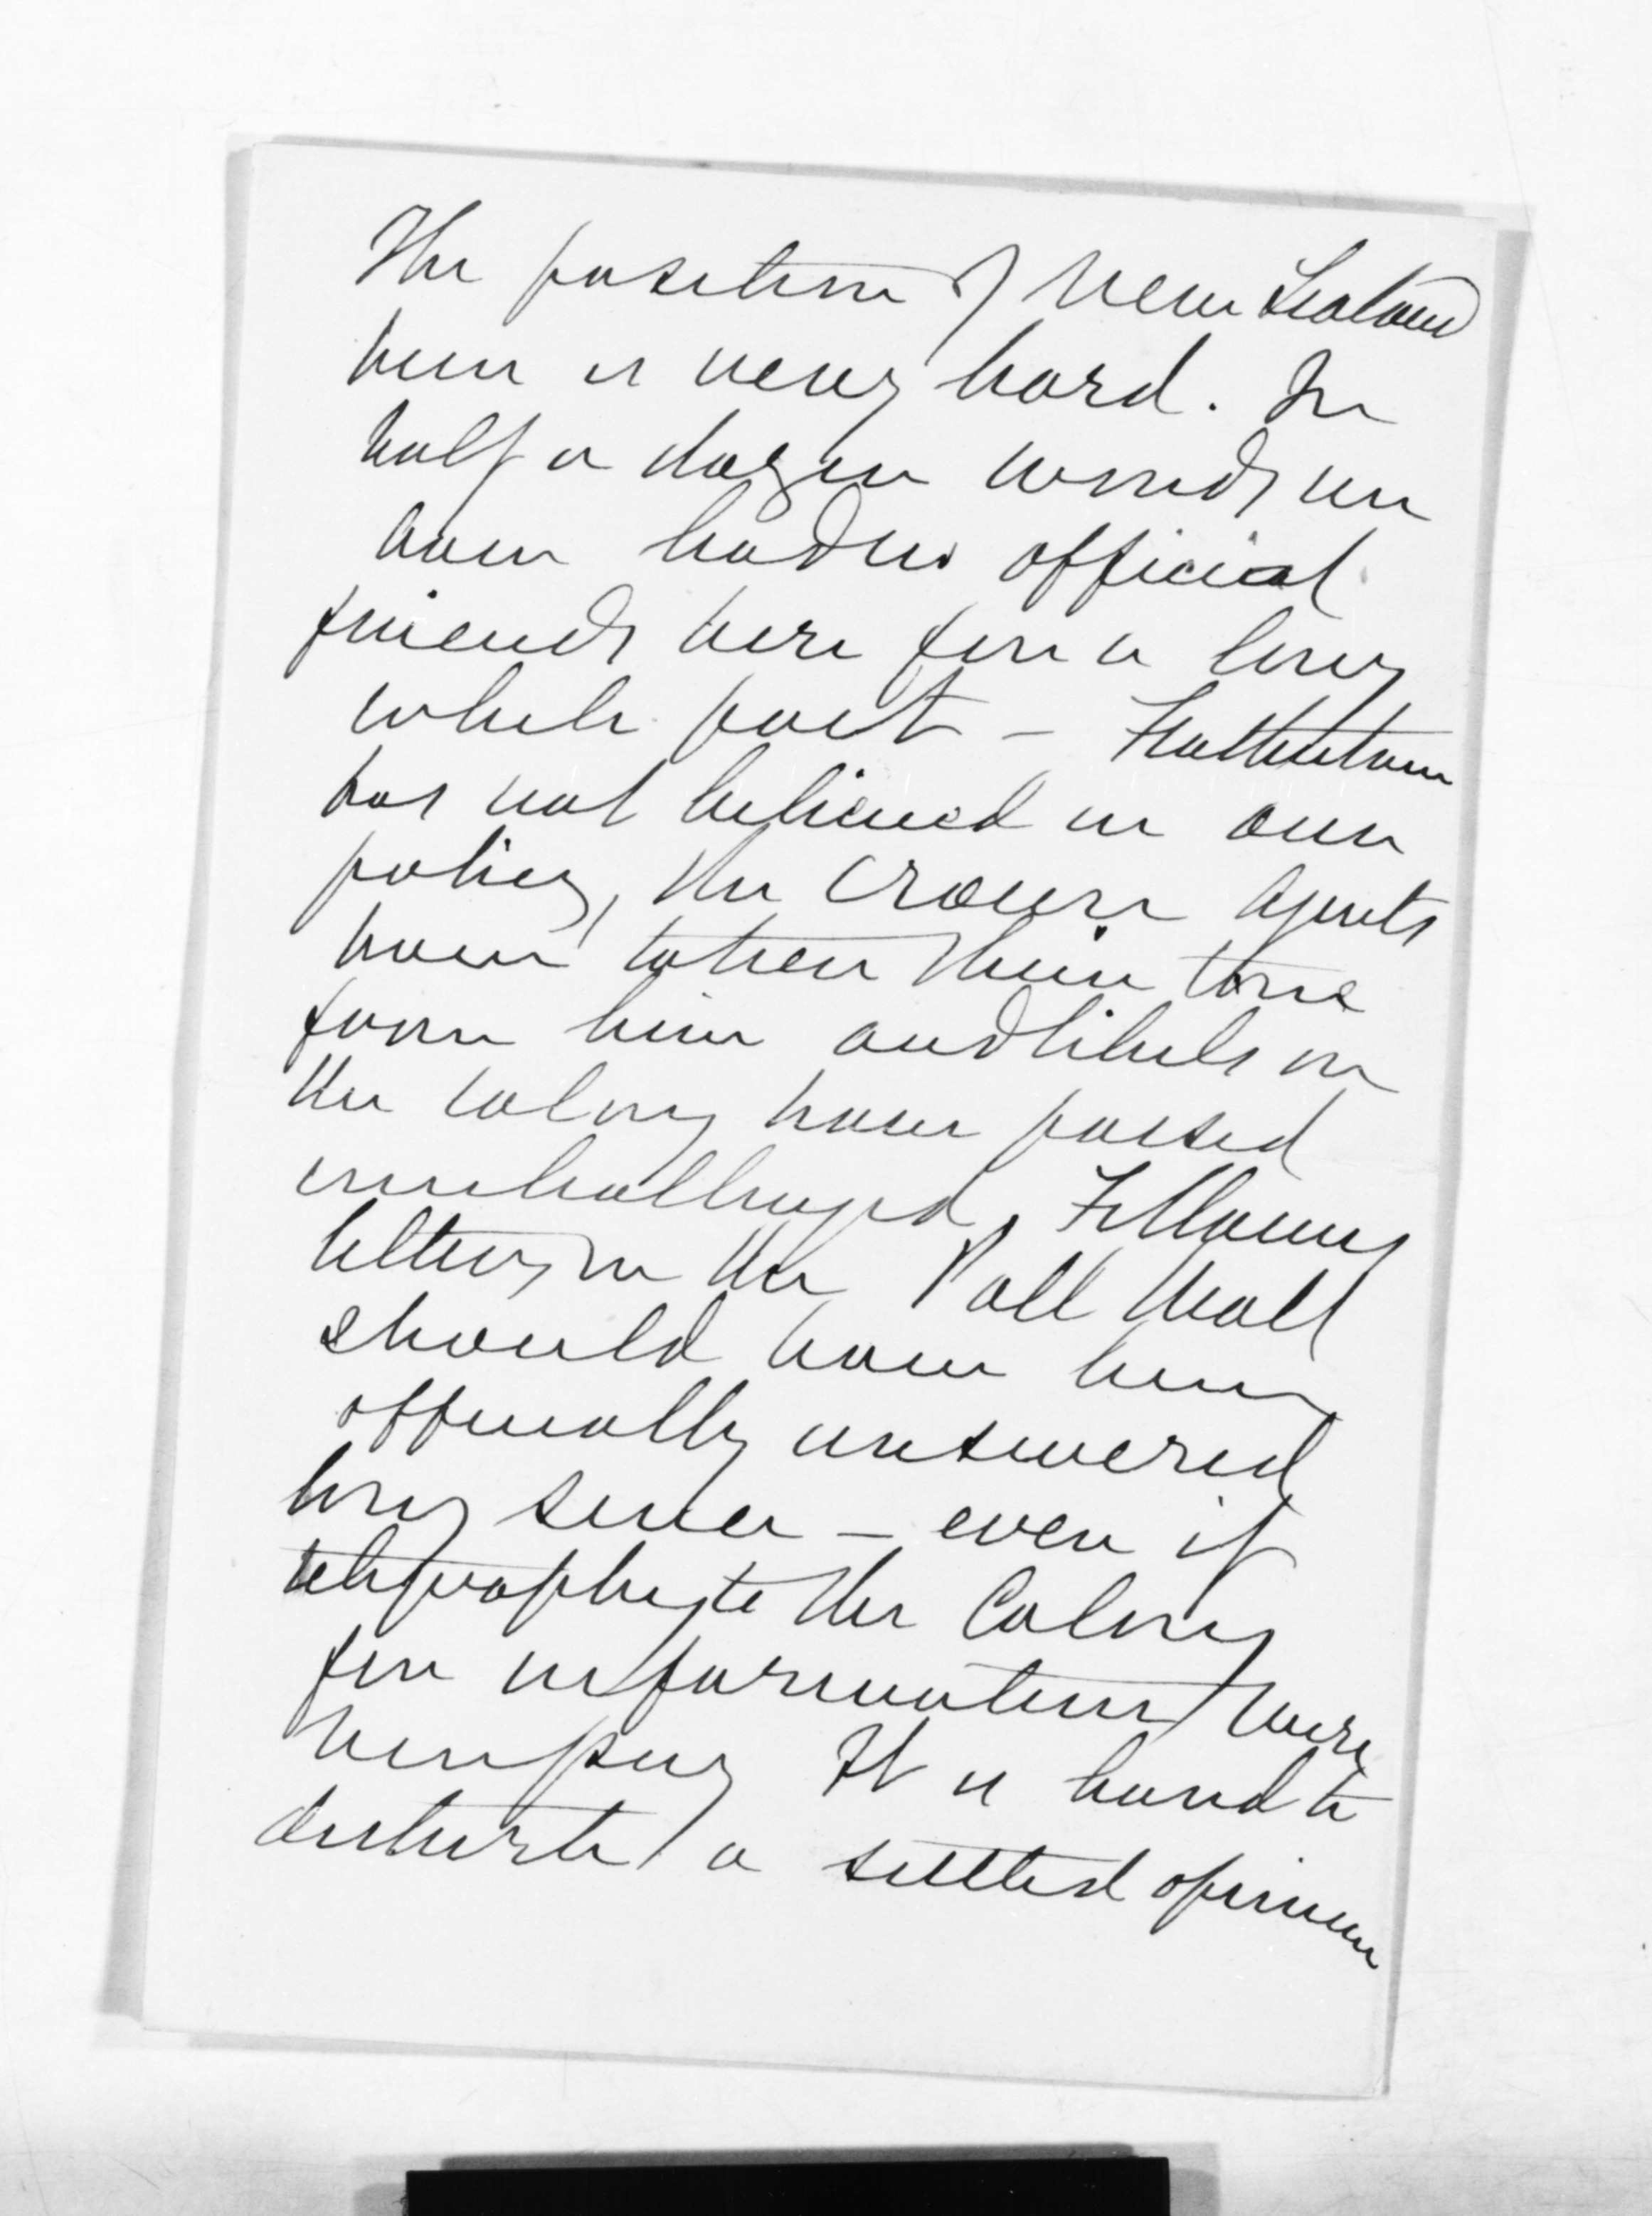 The position of New Zealand
here is very hard. In
half a dozen words we
have had no official
friends here for a long
while past - Featherston
has not believed in our
policy, the Crown Agents
have taken their tone
from him and libels on
the Colony have passed
unchallenged. Fellowes
letters in the Pall Mall
should have been
officially answered
long since - even if
telegraphing to the Colony
for information were
It is hard to
disturb a settled opinion